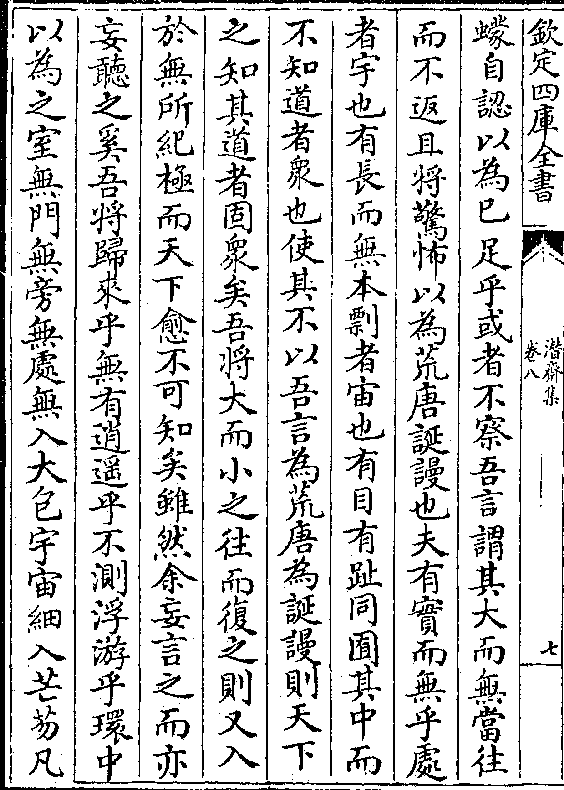 欽定四庫全書
潛齋集
卷八
七
蠓自認以為已足乎或者不察吾言謂其大而無當往
而不返且將驚怖以為荒唐誕謾也夫有實而無乎處
者宇也有長而無本剽者宙也有目有趾同囿其中而
不知道者衆也使其不以吾言為荒唐為誕謾則天下
之知其道者固衆矣吾將大而小之往而復之則又入
於無所紀極而天下愈不可知矣雖然余妄言之而亦
妄聽之奚吾將歸來乎無有逍遥乎不測浮游乎環中
以為之室無門無旁無處無入大包宇宙細入芒芴凡